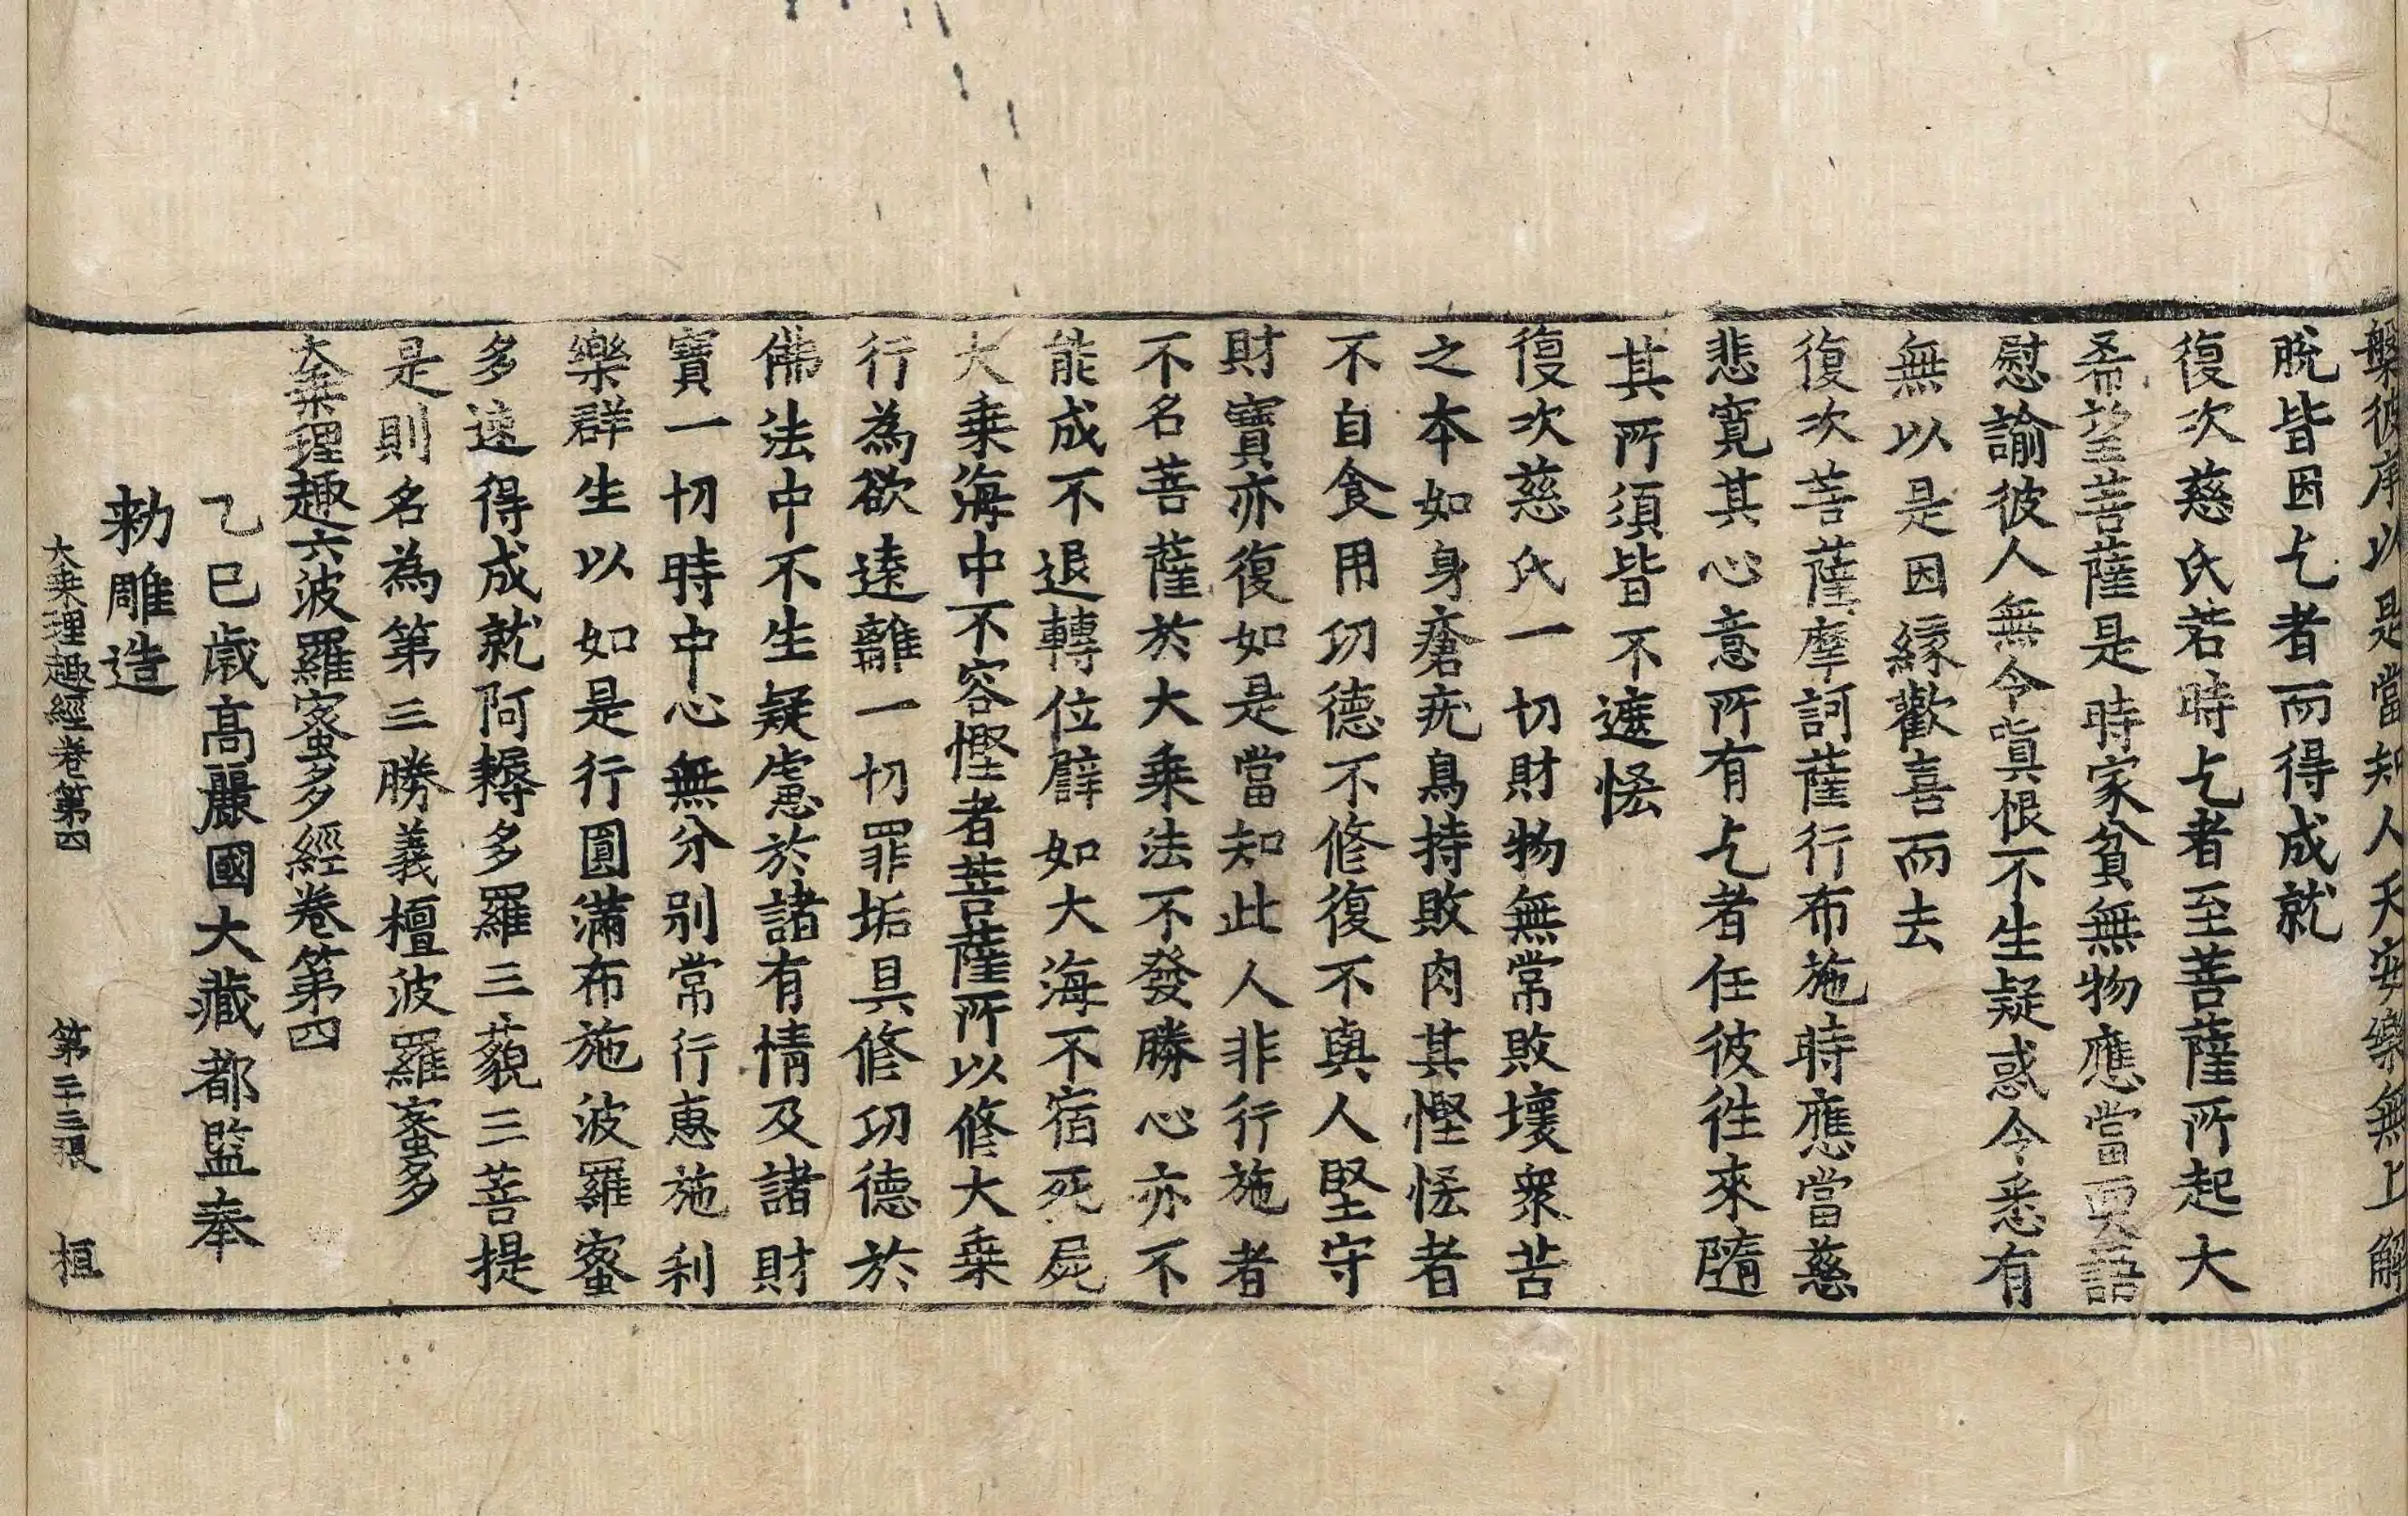 槃彼岸以是當知人天安樂無上解
脫皆因乞者而得成就
復次慈氏若時乞者至菩薩所起大
希望菩薩是時家貧無物應當耎語
慰諭彼人無令嗔恨不生疑惑令悉有
無以是因緣歡喜而去
復次菩薩摩訶薩行布施時應當慈
悲寬其心意所有乞者任彼往來隨
其所須皆不遮悋
復次慈氏一切財物無常敗壞衆苦
之本如身瘡疣鳥持敗肉其慳悋者
不自食用功德不修復不與人堅守
財寶亦復如是當知此人非行施者
不名菩薩於大乗法不發勝心亦不
能成不退轉位譬如大海不宿死屍
大乗海中不容慳者菩薩所以修大乗
行為欲遠離一切罪垢具修功德於
佛法中不生疑慮於諸有情及諸財
寶一切時中心無分別常行惠施利
樂群生以如是行圓滿布施波羅蜜
多速得成就阿耨多羅三藐三菩提
是則名為第三勝義檀波羅蜜多
大乗理趣六波羅蜜多經卷第四
乙巳歲高麗國大藏都監奉
勑雕造
大乗理趣經卷第四 第二十三張 桓